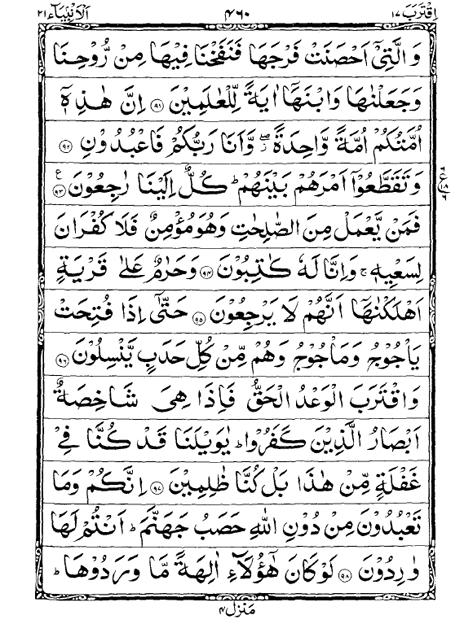 اقترب ١٧ ٤٦٠ الانبياء ٢١
وَالَّتِیْۤ اَحْصَنَتْ فَرْجَهَا فَنَفَخْنَا فِیْهَا مِنْ رُّوْحِنَا
وَجَعَلْنٰهَا وَابْنَهَاۤ اٰیَةً لِّلْعٰلَمِیْنَ ﴿۹۱﴾ اِنَّ هٰذِهٖۤ
اُمَّتُكُمْ اُمَّةً وَّاحِدَةً ۖؗ وَّاَنَا رَبُّكُمْ فَاعْبُدُوْنِ ﴿۹۲﴾
وَتَقَطَّعُوْۤا اَمْرَهُمْ بَیْنَهُمْ ؕ كُلٌّ اِلَیْنَا رٰجِعُوْنَ ﴿۹۳﴾ ع
فَمَنْ یَّعْمَلْ مِنَ الصّٰلِحٰتِ وَهُوَ مُؤْمِنٌ فَلَا كُفْرَانَ
لِسَعْیِهٖ ۚ وَاِنَّا لَهٗ كٰتِبُوْنَ ﴿۹۴﴾ وَحَرٰمٌ عَلٰی قَرْیَةٍ
اَهْلَكْنٰهَاۤ اَنَّهُمْ لَا یَرْجِعُوْنَ ﴿۹۵﴾ حَتّٰۤی اِذَا فُتِحَتْ
یَاْجُوْجُ وَمَاْجُوْجُ وَهُمْ مِّنْ كُلِّ حَدَبٍ یَّنْسِلُوْنَ ﴿۹۶﴾
وَاقْتَرَبَ الْوَعْدُ الْحَقُّ فَاِذَا هِیَ شَاخِصَةٌ
اَبْصَارُ الَّذِیْنَ كَفَرُوْا ؕ یٰوَیْلَنَا قَدْ كُنَّا فِیْ
غَفْلَةٍ مِّنْ هٰذَا بَلْ كُنَّا ظٰلِمِیْنَ ﴿۹۷﴾ اِنَّكُمْ وَمَا
تَعْبُدُوْنَ مِنْ دُوْنِ اللّٰهِ حَصَبُ جَهَنَّمَ ؕ اَنْتُمْ لَهَا
وٰرِدُوْنَ ﴿۹۸﴾ لَوْ كَانَ هٰۤؤُلَآءِ اٰلِهَةً مَّا وَرَدُوْهَا ؕ
منزل ۴